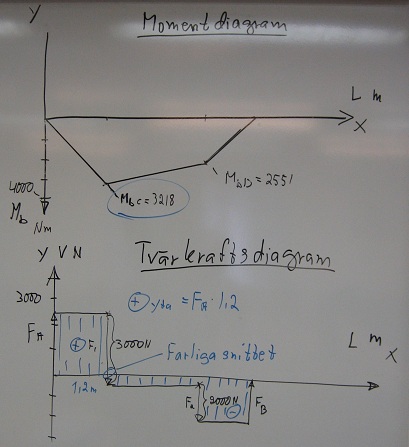 Y
Moment diagram
L m
X
4000
Mb Nm
Mbc = 3218
MbD = 2551
Y V N
Tvärkraftsdiagram
3000
+ yta = FA · 1,2
FA
+ F1
3000N
Farliga snittet
L m
X
1,2m
2000N
FB
-